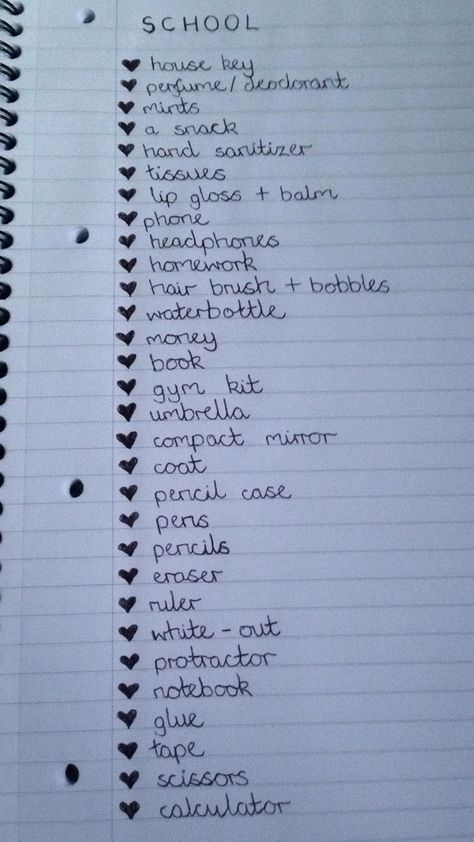 SCHOOL
♥ house key
♥ perfume/deodorant
♥ mints
♥ a snack
♥ hand sanitizer
♥ tissues
♥ lip gloss + balm
♥ phone
♥ headphones
♥ homework
♥ hair brush + bobbles
♥ waterbottle
♥ money
♥ book
♥ gym kit
♥ umbrella
♥ compact mirror
♥ coat
♥ pencil case
♥ pens
♥ pencils
♥ eraser
♥ ruler
♥ white-out
♥ protractor
♥ notebook
♥ glue
♥ tape
♥ scissors
♥ calculator